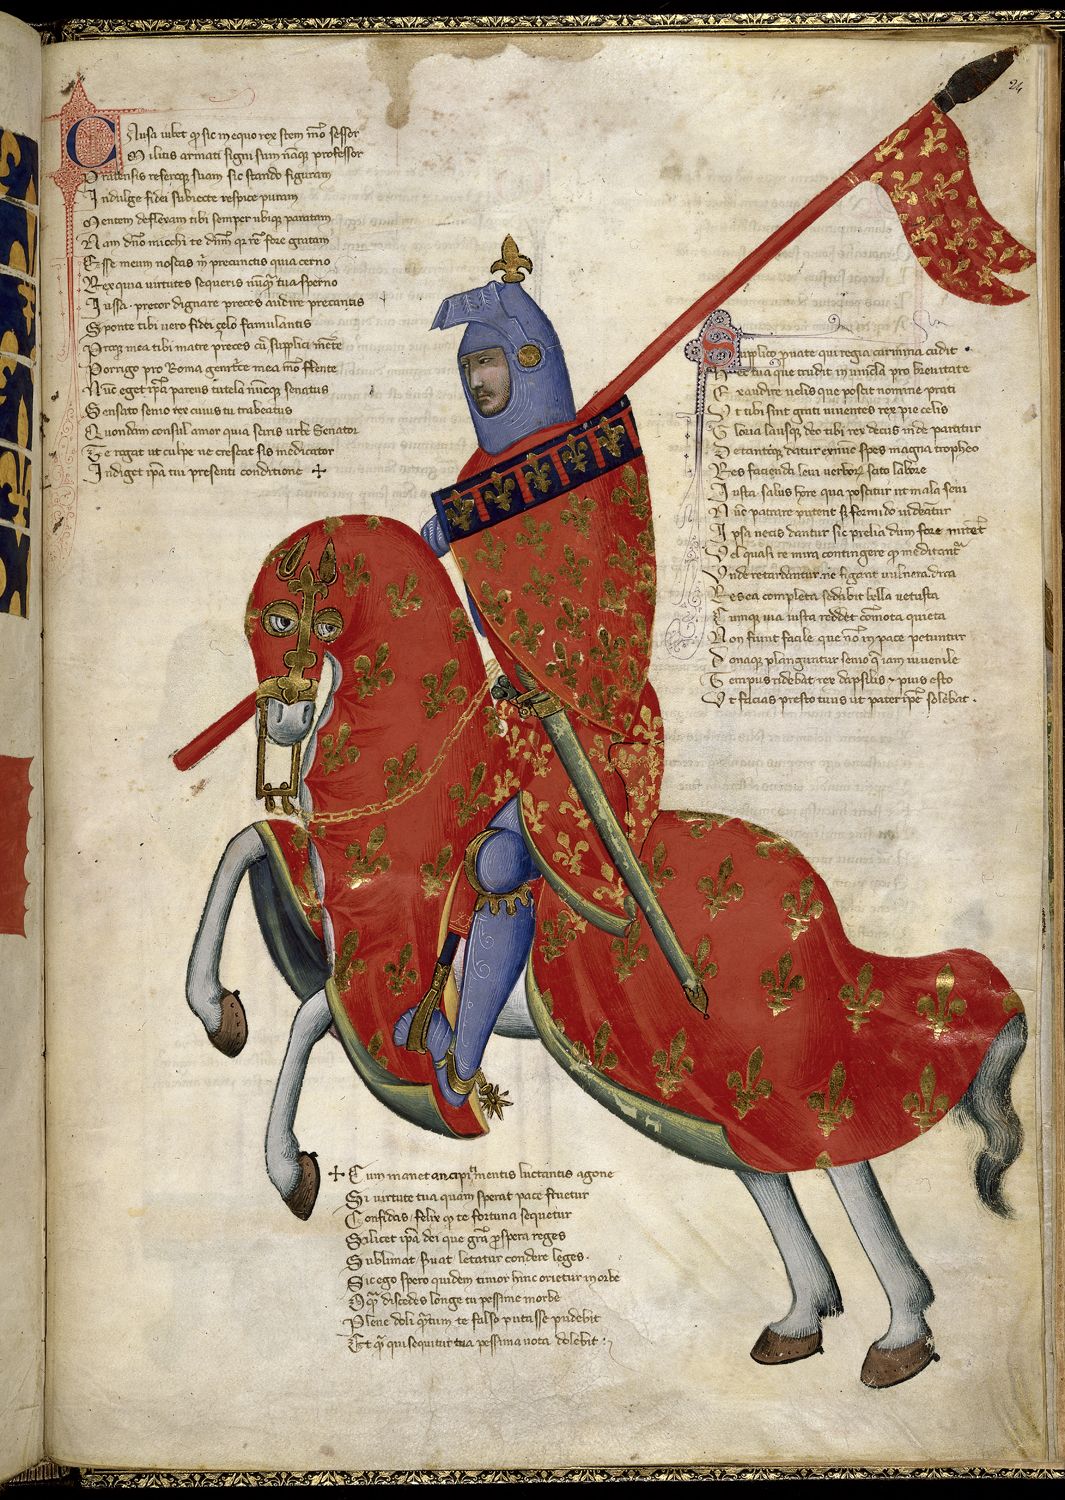 24
Causa iubet qd sic in equo rex stem mo sessor
Militis armati signi sum namque professor
Pratensis referoque suam sic stando figuram
Indulge fidei subiecte respice puram
Mentem deflexam tibi semper ubique paratam
Nam dno micchi te
fore gratam
Esse meum noscas precunctis quia cerno
Rex quia virtutes sequeris tua sperno
Iussa precor dignare preces audire precantis
Sponte tibi vero fidei zelo famulantis
mea tibi matre preces cu supplici mente
Porrigo pro Roma mea flente
Nuc eget ipa parens tutela senatus
Sensato senio rex cuius tu trabeatus
Quondam consul amor quia seris urbe Senator
Te rogat ut culpe ne crescat sis medicator
Indiget ipa tui presenti conditione +
Supplico puate qui regia carmina cudit
que trudit in vincla pro bienitate
Exaudire velis que poscit nomine prati
Ut tibi sint grati viventes rex pie celis
Gloria lausque deo tibi rex decus inde paratur
datur spes magna tropheo
Res facienda leui verbor sato labore
Iusta salus hore qua poscitur ut mala seui
Nuc patrare putent si formido videatur
Ipsa necis dantur sic prelia dum fore
Vel quasi re mira contingere
Unde retardantur ne figant vulnera dira
Res ea completa sedabit bella vetusta
Cumque via iusta reddet comota quieta
Non fiunt facile que no in pace petuntur
planguntur senio iam iuvenile
Tempus ridebat rex dapsilis pius esto
Ut facias presto tuus ut pater ipe solebat
+ Cum manet ancipiti mentis luctantis agone
Si virtute tua quam sperat pace fruetur
Confidas felix te fortuna sequetur
Scilicet ipa dei que gra pspera reges
Sublimat letatur condere leges
Sic ego spero quidem timor hinc orietur in orbe
discedes longe tu pessime morbe
Plene doli te falso putasse pudebit
Et qui sequitur tua pessima vota dolebit